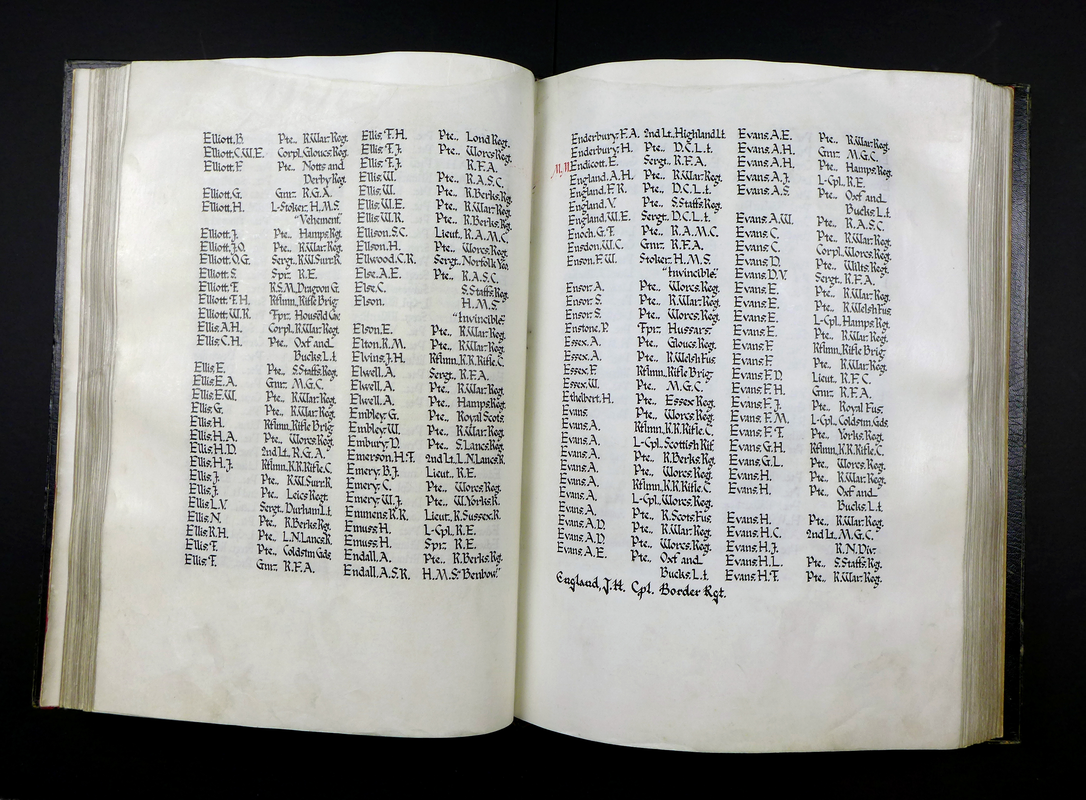 Elliott, B. Pte., R.War: Regt.
Elliott, C.W.E. Corpl, Gloucs. Regt.
Elliott, F. Pte., Notts and
Derby Regt.
Elliott, G. Gnr: R.G.A.
Elliott, H. L-Stoker: H.M.S.
"Vehement"
Elliott, J. Pte., Hamps. Regt.
Elliott, J.O. Pte., R.War: Regt.
Elliott, O.G. Sergt., R.W.Surr.R.
Elliott, S. Spr: R.E.
Elliott, T. R.S.M., Dragoon G.
Elliott, T.H. Rflmn., Rifle Brig:
Elliott, W.R. Tpr: Household Cav:
Ellis, A.H. Corpl, R.War: Regt.
Ellis, C.H. Pte., Oxf and
Bucks. L.I.
Ellis, E. Pte., S.Staffs. Regt.
Ellis, E.A. Gnr: M.G.C.
Ellis, E.W. Pte., R.War: Regt.
Ellis, G. Pte., R.War: Regt.
Ellis, H. Rflmn., Rifle Brig:
Ellis, H.A. Pte., Worcs. Regt.
Ellis, H.D. 2nd Lt., R.G.A.
Ellis, H.J. Rflmn., K.R. Rifle. C.
Ellis, J. Pte., R.W.Surr.R.
Ellis, J. Pte., Leics. Regt.
Ellis, L.V. Sergt. Durham L.I.
Ellis, N. Pte., R.Berks. Rgt.
Ellis, R.H. Pte., L.N.Lancs.R.
Ellis, T. Pte., Coldstm. Gds.
Ellis, T. Gnr: R.F.A.
Ellis, T.H. Pte., Lond. Regt.
Ellis, T.J. Pte., Worcs. Regt.
Ellis, T.J. R.F.A.
Ellis, W. Pte., R.A.S.C.
Ellis, W. Pte., R.Berks. Rgt.
Ellis, W.E. Pte., R.War: Regt.
Ellis, W.R. Pte., R.Berks. Rgt.
Ellison, S.C. Lieut., R.A.M.C.
Ellson, H. Pte., Worcs. Regt.
Ellwood, C.R. Sergt., Norfolk Yeo.
Else, A.E. Pte., R.A.S.C.
Else, C. S.Staffs. Reg.
Elson. H.M.S.
"Invincible"
Elson, E. Pte., R.War: Regt.
Elton, R.M. Pte., R.War: Regt.
Elvins, J.H. Rflmn., K.R. Rifle. C.
Elwell, A. Sergt., R.F.A.
Elwell, A. Pte., R.War: Regt.
Elwell, A. Pte., Hamps. Regt.
Embley, G. Pte., Royal Scots
Embley, W. Pte., R.War: Regt.
Embury, D. Pte., S.Lancs. Regt.
Emerson, H.T. 2nd Lt., L.N.Lancs.R.
Emery, B.J. Lieut., R.E.
Emery, C. Pte., Worcs. Regt.
Emery, W.J. Pte., W.Yorks. R.
Emmens, R.R. Lieut., R.Sussex. R.
Emuss, H. L-Cpl, R.E.
Emuss, H. Spr: R.E.
Endall, A. Pte., R.Berks. Rgt.
Endall, A.S.R. H.M.S. "Benbow"
Enderbury, F.A. 2nd Lt., Highland L.I.
Enderbury, H. Pte., D.C.L.I.
M.M. Endicott, E. Sergt., R.F.A.
England, A.H. Pte., R.War: Regt.
England, F.R. Pte., D.C.L.I.
England, V. Pte., S.Staffs. Rgt.
England, W.E. Sergt., D.C.L.I.
Enoch, G.T. Pte., R.A.M.C.
Ensdon, W.C. Gnr: R.F.A.
Enson, F.W. Stoker: H.M.S.
"Invincible"
Ensor, A. Pte., Worcs. Regt.
Ensor, S. Pte., R.War: Regt.
Ensor, S. Pte., Worcs. Regt.
Enstone, P. Tpr: Hussars
Essex, A. Pte., Gloucs. Regt.
Essex, A. Pte., R.Welsh Fus.
Essex, F. Rflmn., Rifle Brig:
Essex, W. Pte., M.G.C.
Ethelbert, H. Pte., Essex Regt.
Evans. Pte., Worcs. Regt.
Evans, A. Rflmn., K.R. Rifle. C.
Evans, A. L-Cpl, Scottish Rif.
Evans, A. Pte., R.Berks. Rgt.
Evans, A. Pte., Worcs. Regt.
Evans, A. Rflmn., K.R. Rifle. C.
Evans, A. L-Cpl, Worcs. Regt.
Evans, A. Pte., R.Scots. Fus.
Evans, A.D. Pte., R.War: Regt.
Evans, A.D. Pte., Worcs. Regt.
Evans, A.E. Pte., Oxf and
Bucks. L.I.
England, J.H. Cpl. Border Rgt.
Evans, A.E. Pte., R.War: Regt.
Evans, A.H. Gnr: M.G.C.
Evans, A.H. Pte., Hamps. Regt.
Evans, A.J. L-Cpl, R.E.
Evans, A.S. Pte., Oxf and
Bucks. L.I.
Evans, A.W. Pte., R.A.S.C.
Evans, C. Pte., R.War: Regt.
Evans, C. Corpl, Worcs. Regt.
Evans, D. Pte., Wilts. Regt.
Evans, D.V. Sergt., R.F.A.
Evans, E. Pte., R.War: Regt.
Evans, E. Pte., R.Welsh Fus.
Evans, E. L-Cpl, Hamps. Rgt.
Evans, E. Pte., R.War: Regt.
Evans, F. Rflmn., Rifle Brig:
Evans, F. Pte., R.War: Regt.
Evans, F.D. Lieut., R.F.C.
Evans, F.H. Gnr: R.F.A.
Evans, F.J. Pte., Royal Fus.
Evans, F.M. L-Cpl, Coldstm. Gds.
Evans, F.T. Pte., Yorks. Regt.
Evans, G.H. Rflmn., K.R. Rifle. C.
Evans, G.L. Pte., Worcs. Regt.
Evans, H. Pte., R.War: Regt.
Evans, H. Pte., Oxf and
Bucks. L.I.
Evans, H. Pte., R.War: Regt.
Evans, H.C. 2nd Lt., M.G.C.
Evans, H.J. R.N. Div:
Evans, H.L. Pte., S.Staffs. Rgt.
Evans, H.T. Pte., R.War: Regt.